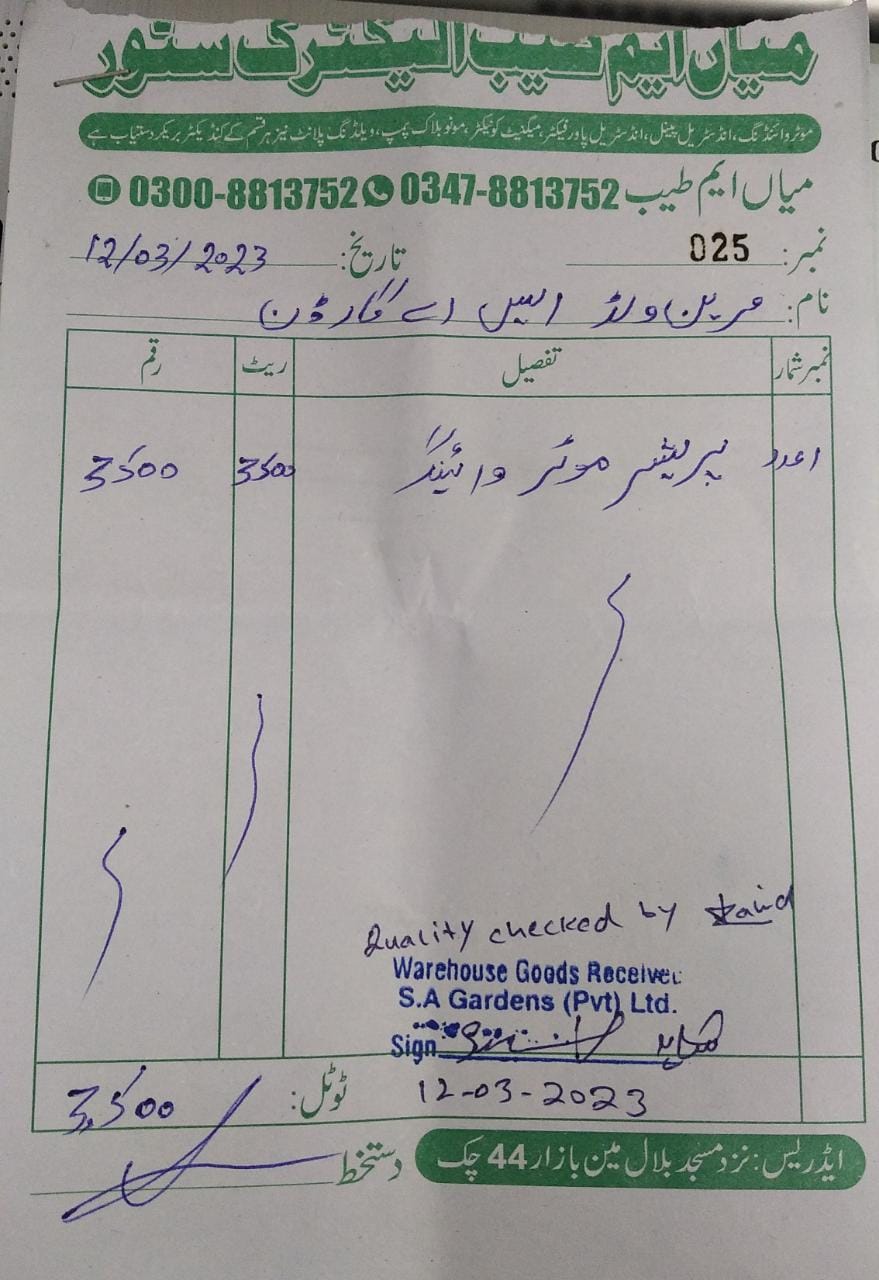 میاں ایم طیب الیکٹرک سٹور
موٹر وائنڈنگ، انڈسٹریل پینل، انڈسٹریل پاور فیکٹر، میگنیٹ کونیکٹر، مونو بلاک پمپ، ویلڈنگ پلانٹ نیز ہر قسم کے کنڈیکٹر بریکر دستیاب ہے
میاں ایم طیب 0347-8813752 0300-8813752
نمبر: 025 تاریخ: 12/03/2023
نام: گرین ورلڈ ایس اے گارڈن
نمبر شمار تفصیل ریٹ رقم
1 عدد پریشر موٹر وائینگ 3500 3500
Quality checked by
Warehouse Goods Received
S.A Gardens (Pvt) Ltd.
Sign
12-03-2023
ٹوٹل: 3,500
دستخط
ایڈریس: نزد مسجد بلال مین بازار 44 چک